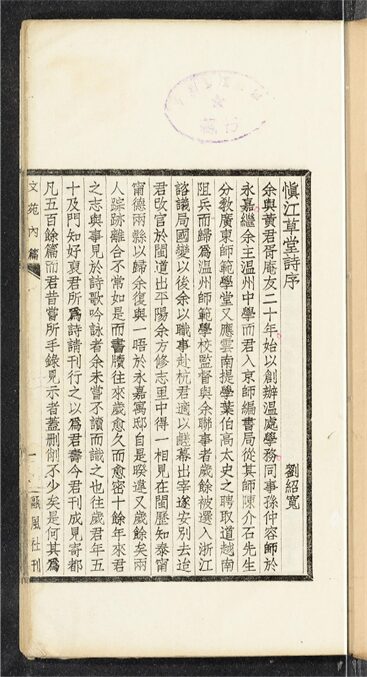 慎江草堂詩序
劉紹寬
余與黃君胥庵友二十年始以創辦溫處學務同事孫仲容師於
永嘉繼余主溫州中學而君入京師編書局從其師陳介石先生
分教廣東師範學堂又應雲南提學葉伯高太史之聘取道越南
阻兵而歸爲溫州師範學校監督與余聯事者歲餘被選入浙江
諮議局國變以後余以職事赴杭君適以縣幕出宰遂安別去迨
君改官於閩道出平陽余方修志里中得一相見在閩歷知泰甯
甯德兩縣以歸余復與一晤於永嘉寓邸自是暌違又歲餘矣兩
人蹤跡離合不常如是而書牘往來歲愈久而愈密十餘年來君
之志與事見於詩歌吟詠者余未嘗不讀而識之也往歲君年五
十及門知好裒君所爲詩請刊行之以爲君壽今君刊成見寄都
凡五百餘篇而君昔嘗所手錄見示者蓋刪削不少矣是何其爲
文苑內篇
一
甌風社刊